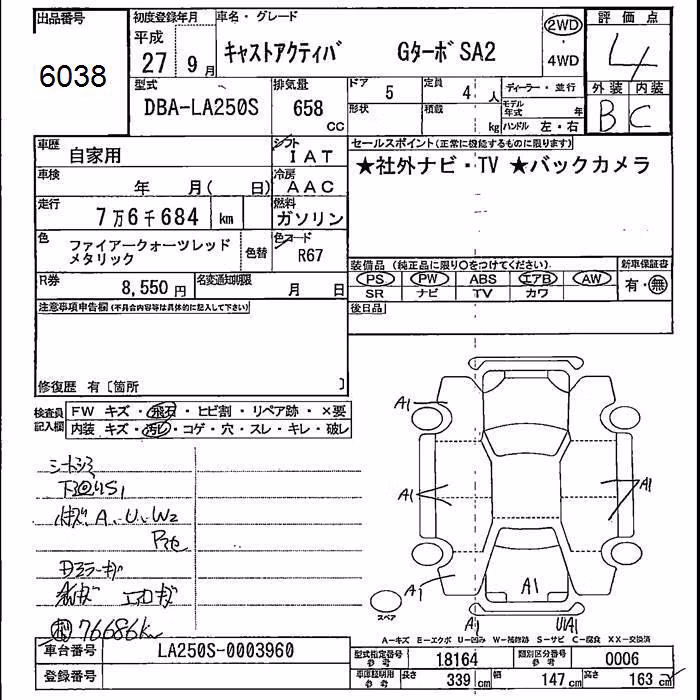 出品番号
6038
初度登録年月
平成
27 9 月
車名・グレード
キャストアクティバ Gターボ SA2
2WD
・
4WD
評価点
4
外装 内装
B C
型式
DBA-LA250S
排気量
658
cc
ドア 5
定員 4 人
形状
積載 kg
ディーラー・並行
モデル年式 年
ハンドル 左・右
車歴 自家用
シフト IAT
車検 年 月( 日)
冷房 AAC
走行 7万6千684 km
燃料 ガソリン
色 ファイアークォーツレッド
メタリック
色替
色コード R67
R券 8,550 円
名変通知期限 月 日
セールスポイント(正常に機能するものに限ります)
★社外ナビ・TV ★バックカメラ
装備品 (純正品に限り○をつけてください)
PS PW ABS エアB AW
SR ナビ TV カワ
新車保証書
有・無
後日品
注意事項申告欄(不具合内容等は具体的に記入して下さい)
修復歴 有〔箇所 〕
検査員
記入欄
FW キズ・飛石・ヒビ割・リペア跡・×要
内装 キズ・汚レ・コゲ・穴・スレ・キレ・破レ
シートシミ
下回りS1
A、U、W2
エアロキズ
76686km
A1
A1
A1
A1
A1
A1
U1A1
スペア
A-キズ E-エクボ U-凹み W-補修跡 S-サビ C-腐食 XX-交換済
車台番号 LA250S-0003960
登録番号
型式指定番号
参考
18164
類別区分番号
参考
0006
車庫証明用
参考
長さ 339 cm
幅 147 cm
高さ 163 cm